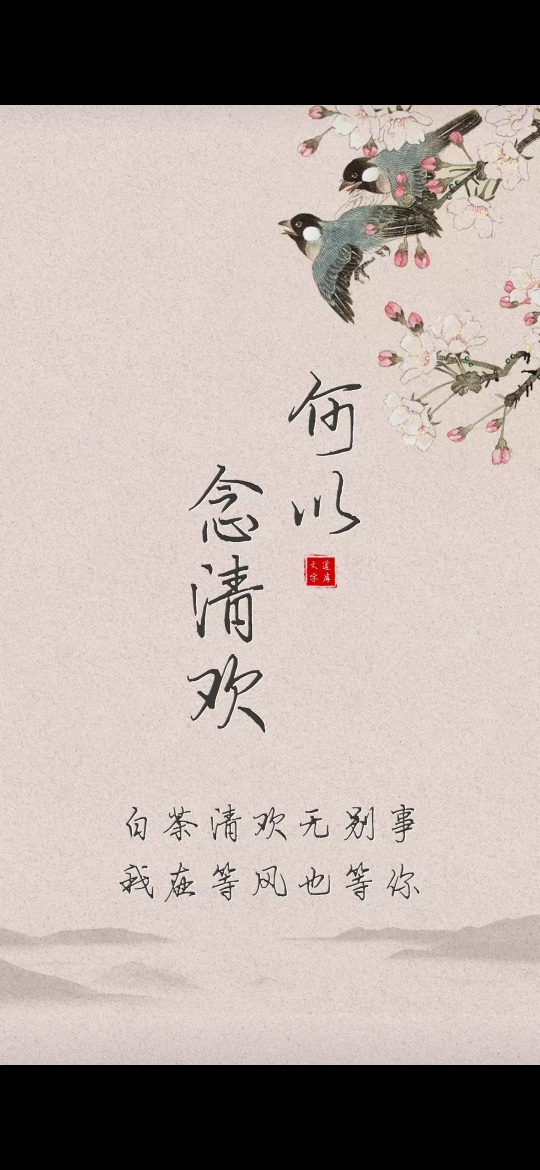 何以
念清欢
文字
道库
白茶清欢无别事
我在等风也等你